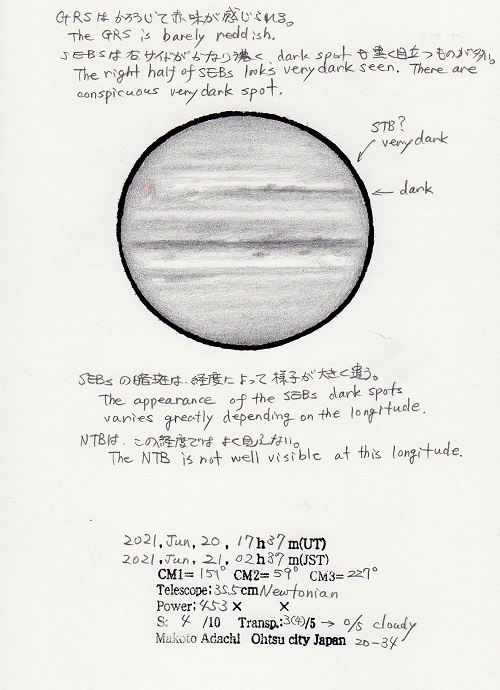 GRSはかろうじて赤味が感じられる。
The GRS is barely reddish.
SEBsは右サイドがかなり濃く、dark spotも黒く目立つものが多い。
The right half of SEBs looks very dark seen. There are
conspicuous very dark spot.
STB?
very dark
dark
SEBsの暗斑は、経度によって様子が大きく違う。
The appearance of the SEBs dark spots
varies greatly depending on the longitude.
NTBは、この経度ではよく見えない。
The NTB is not well visible at this longitude.
2021, Jun, 20, 17h37m(UT)
2021, Jun, 21, 02h37m(JST)
CM1=151° CM2=59° CM3=227°
Telescope; 35.5cm Newtonian
Power; 453× ×
S: 4 /10 Transp.: 3(4)/5 → 0/5 cloudy
Makoto Adachi Ohtsu city Japan 20-34